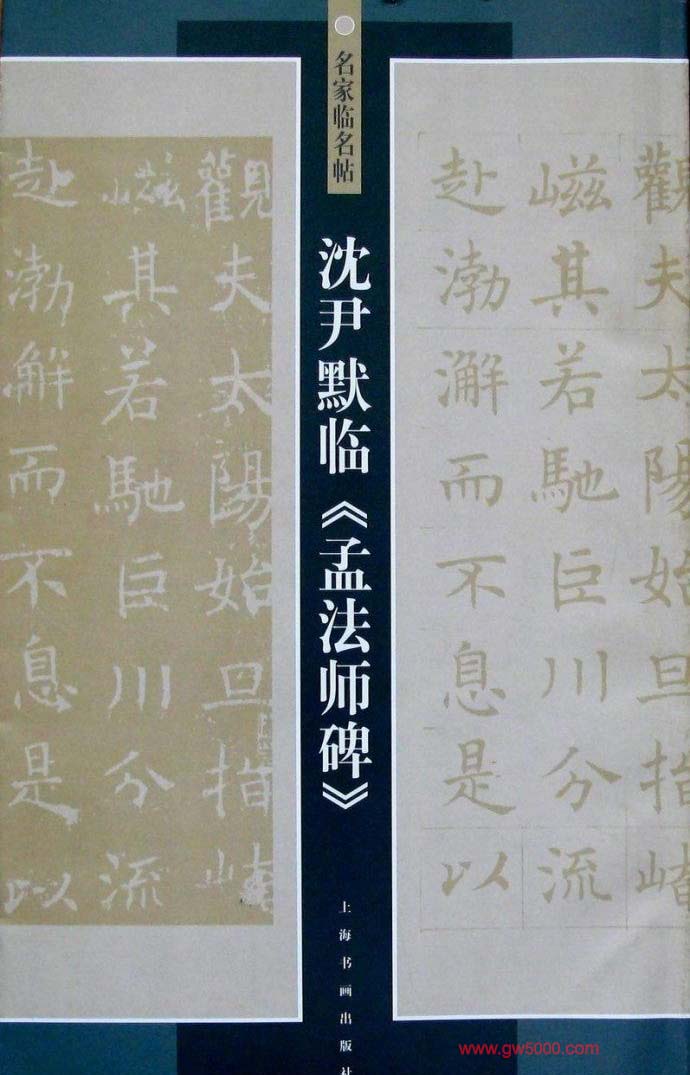 名家临名帖
沈尹默临《孟法师碑》
上海书画出版社
觀夫太陽始旦指崦
嵫其若馳巨川分流
赴渤澥而不息是以
觀夫太陽始旦指崦
嵫其若馳巨川分流
赴渤澥而不息是以
www.gw5000.com